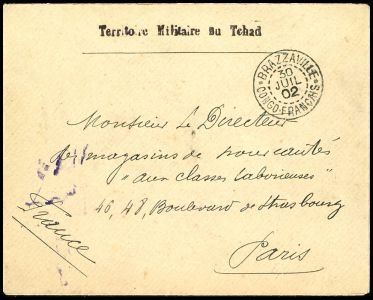 Territoire Militaire du Tchad
BRAZZAVILLE
30
JUIL
02
CONGO-FRANÇAIS
Monsieur Le Directeur
des magasins de nouveautés
"aux classes laborieuses"
46, 48, Boulevard de Strasbourg
Paris
France